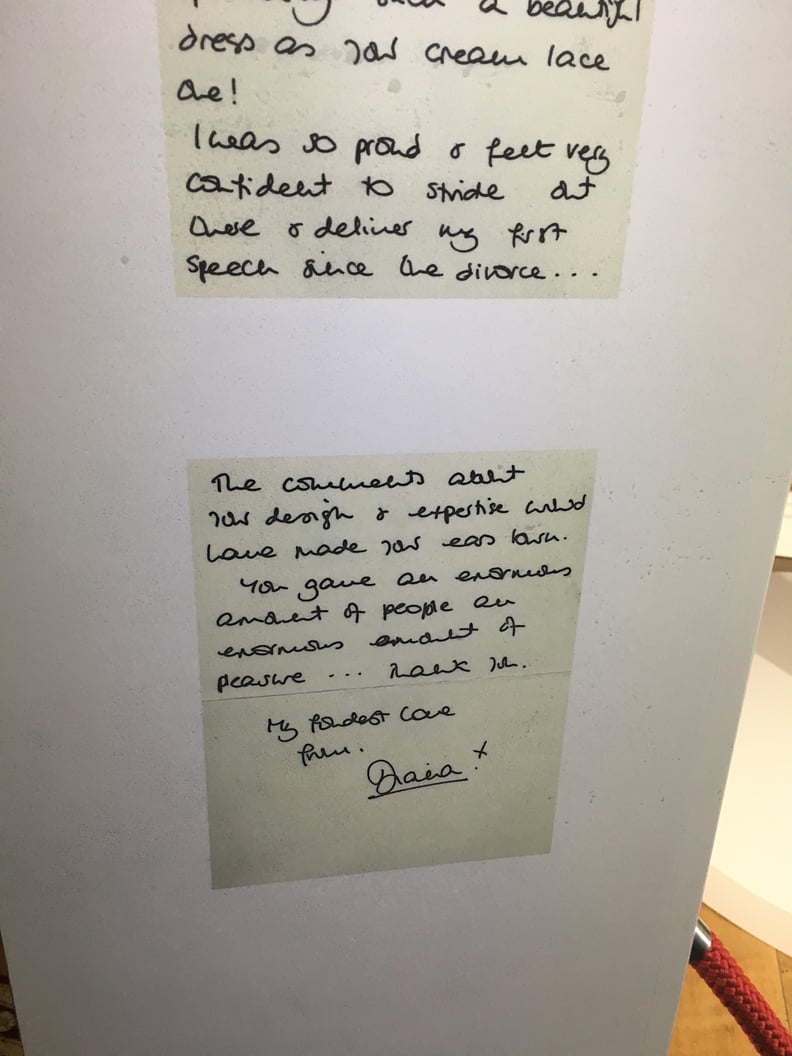 a beautiful
dress as your cream lace
one!
I was so proud & felt very
confident to stride out
there & deliver my first
speech since the divorce...
The comments about
your design & expertise would
have made your ears burn.
You gave an enormous
amount of people an
enormous amount of
peasure ... Thank you.
My fondest love
from.
Diana. x